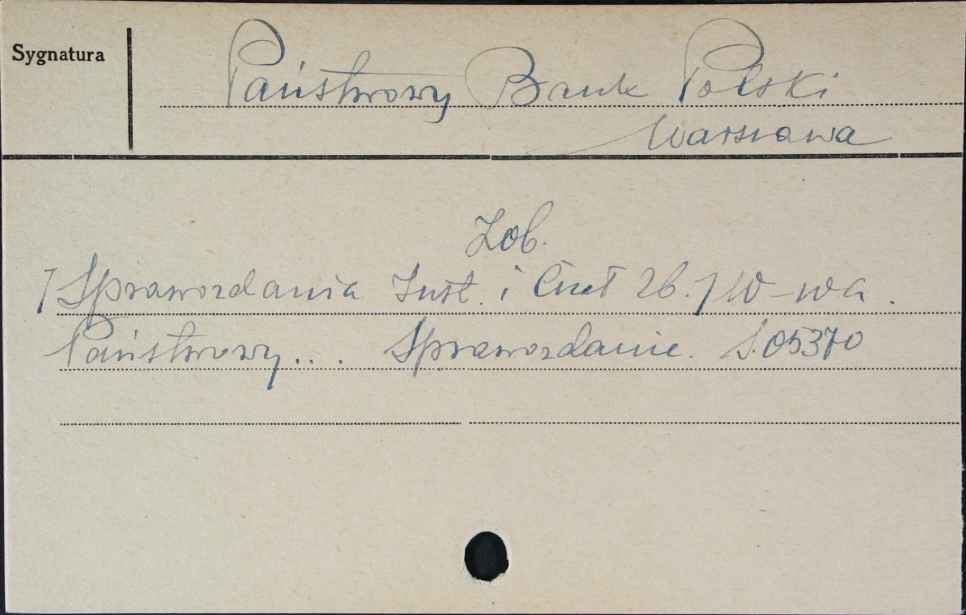 Sygnatura
Państwowy Bank Polski
Warszawa
Zob.
/Sprawozdania Inst. i 26./W-wa.
Państwowy... Sprawozdanie. S.05370